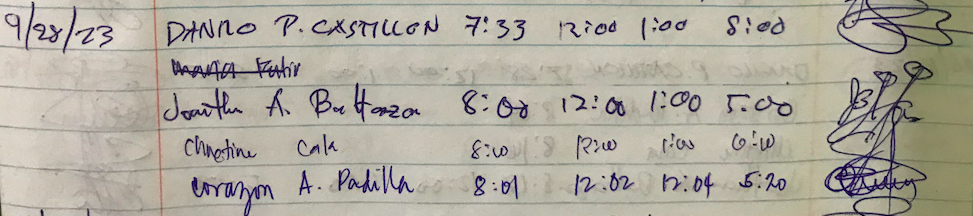 9/28/23 DANILO P. CASTILLON 7:33 12:00 1:00 8:00
Jonathan A. Baltazar 8:00 12:00 1:00 5:00
Christine Cala 8:00 12:00 1:00 6:00
Corazon A. Padilla 8:01 12:02 12:04 5:20